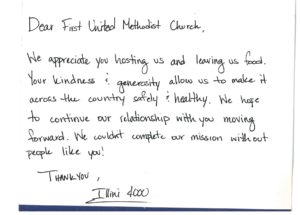 Dear First United Methodist Church,
We appreciate you hosting us and leaving us food.
Your kindness & generosity allow us to make it
across the country safely & healthy. We hope
to continue our relationship with you moving
forward. We couldn't complete our mission without
people like you!
THANK YOU,
Illini 4000